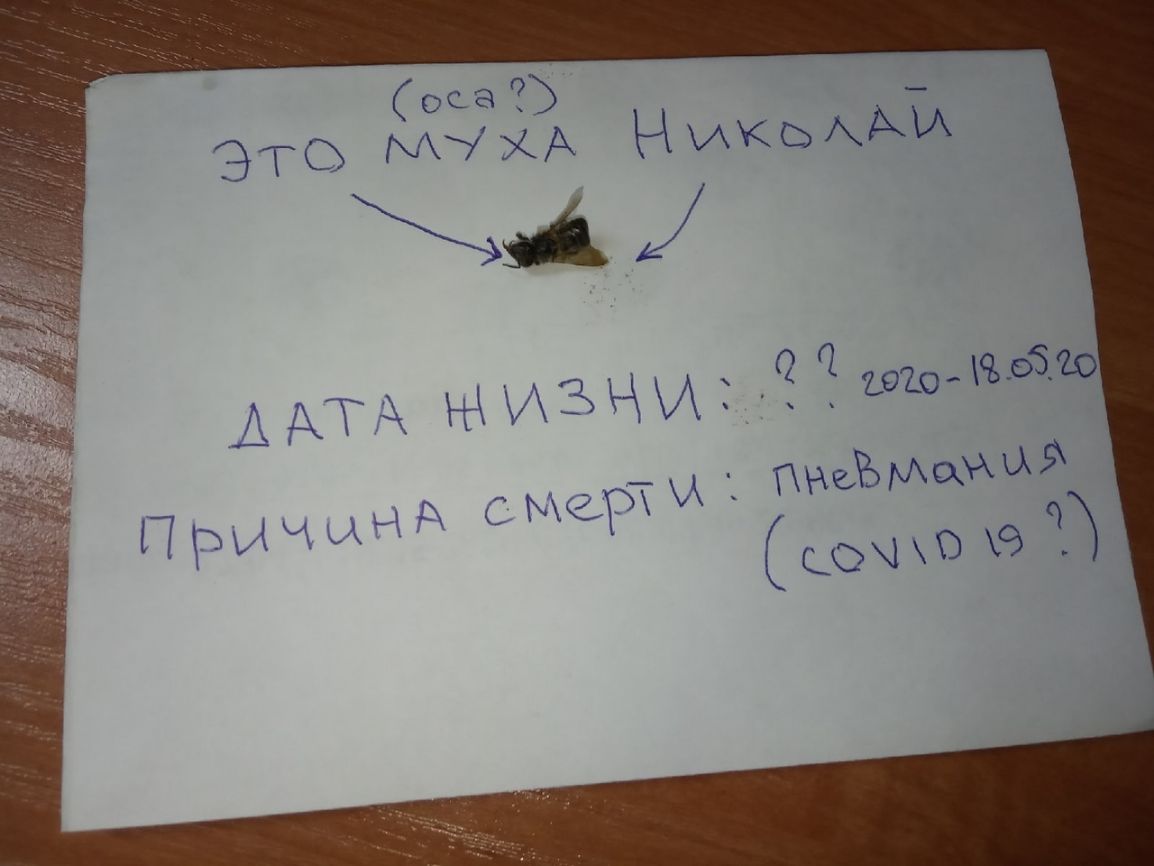 (оса?)
ЭТО МУХА НИКОЛАЙ
ДАТА ЖИЗНИ: ?? 2020-18.05.20
ПРИЧИНА СМЕРТИ: ПНЕВМАНИЯ
(COVID 19?)